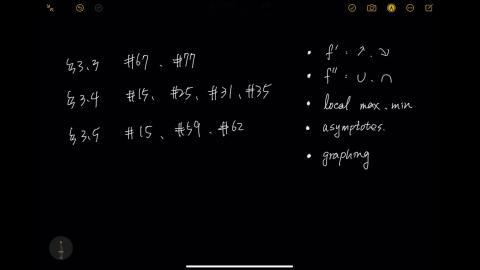 §3.3 #67、#77
§3.4 #15、#25、#31、#35
§3.5 #15、#59、#62
• f' : ↗, ↘
• f'' : ∪, ∩
• local max. min
• asymptotes.
• graphing